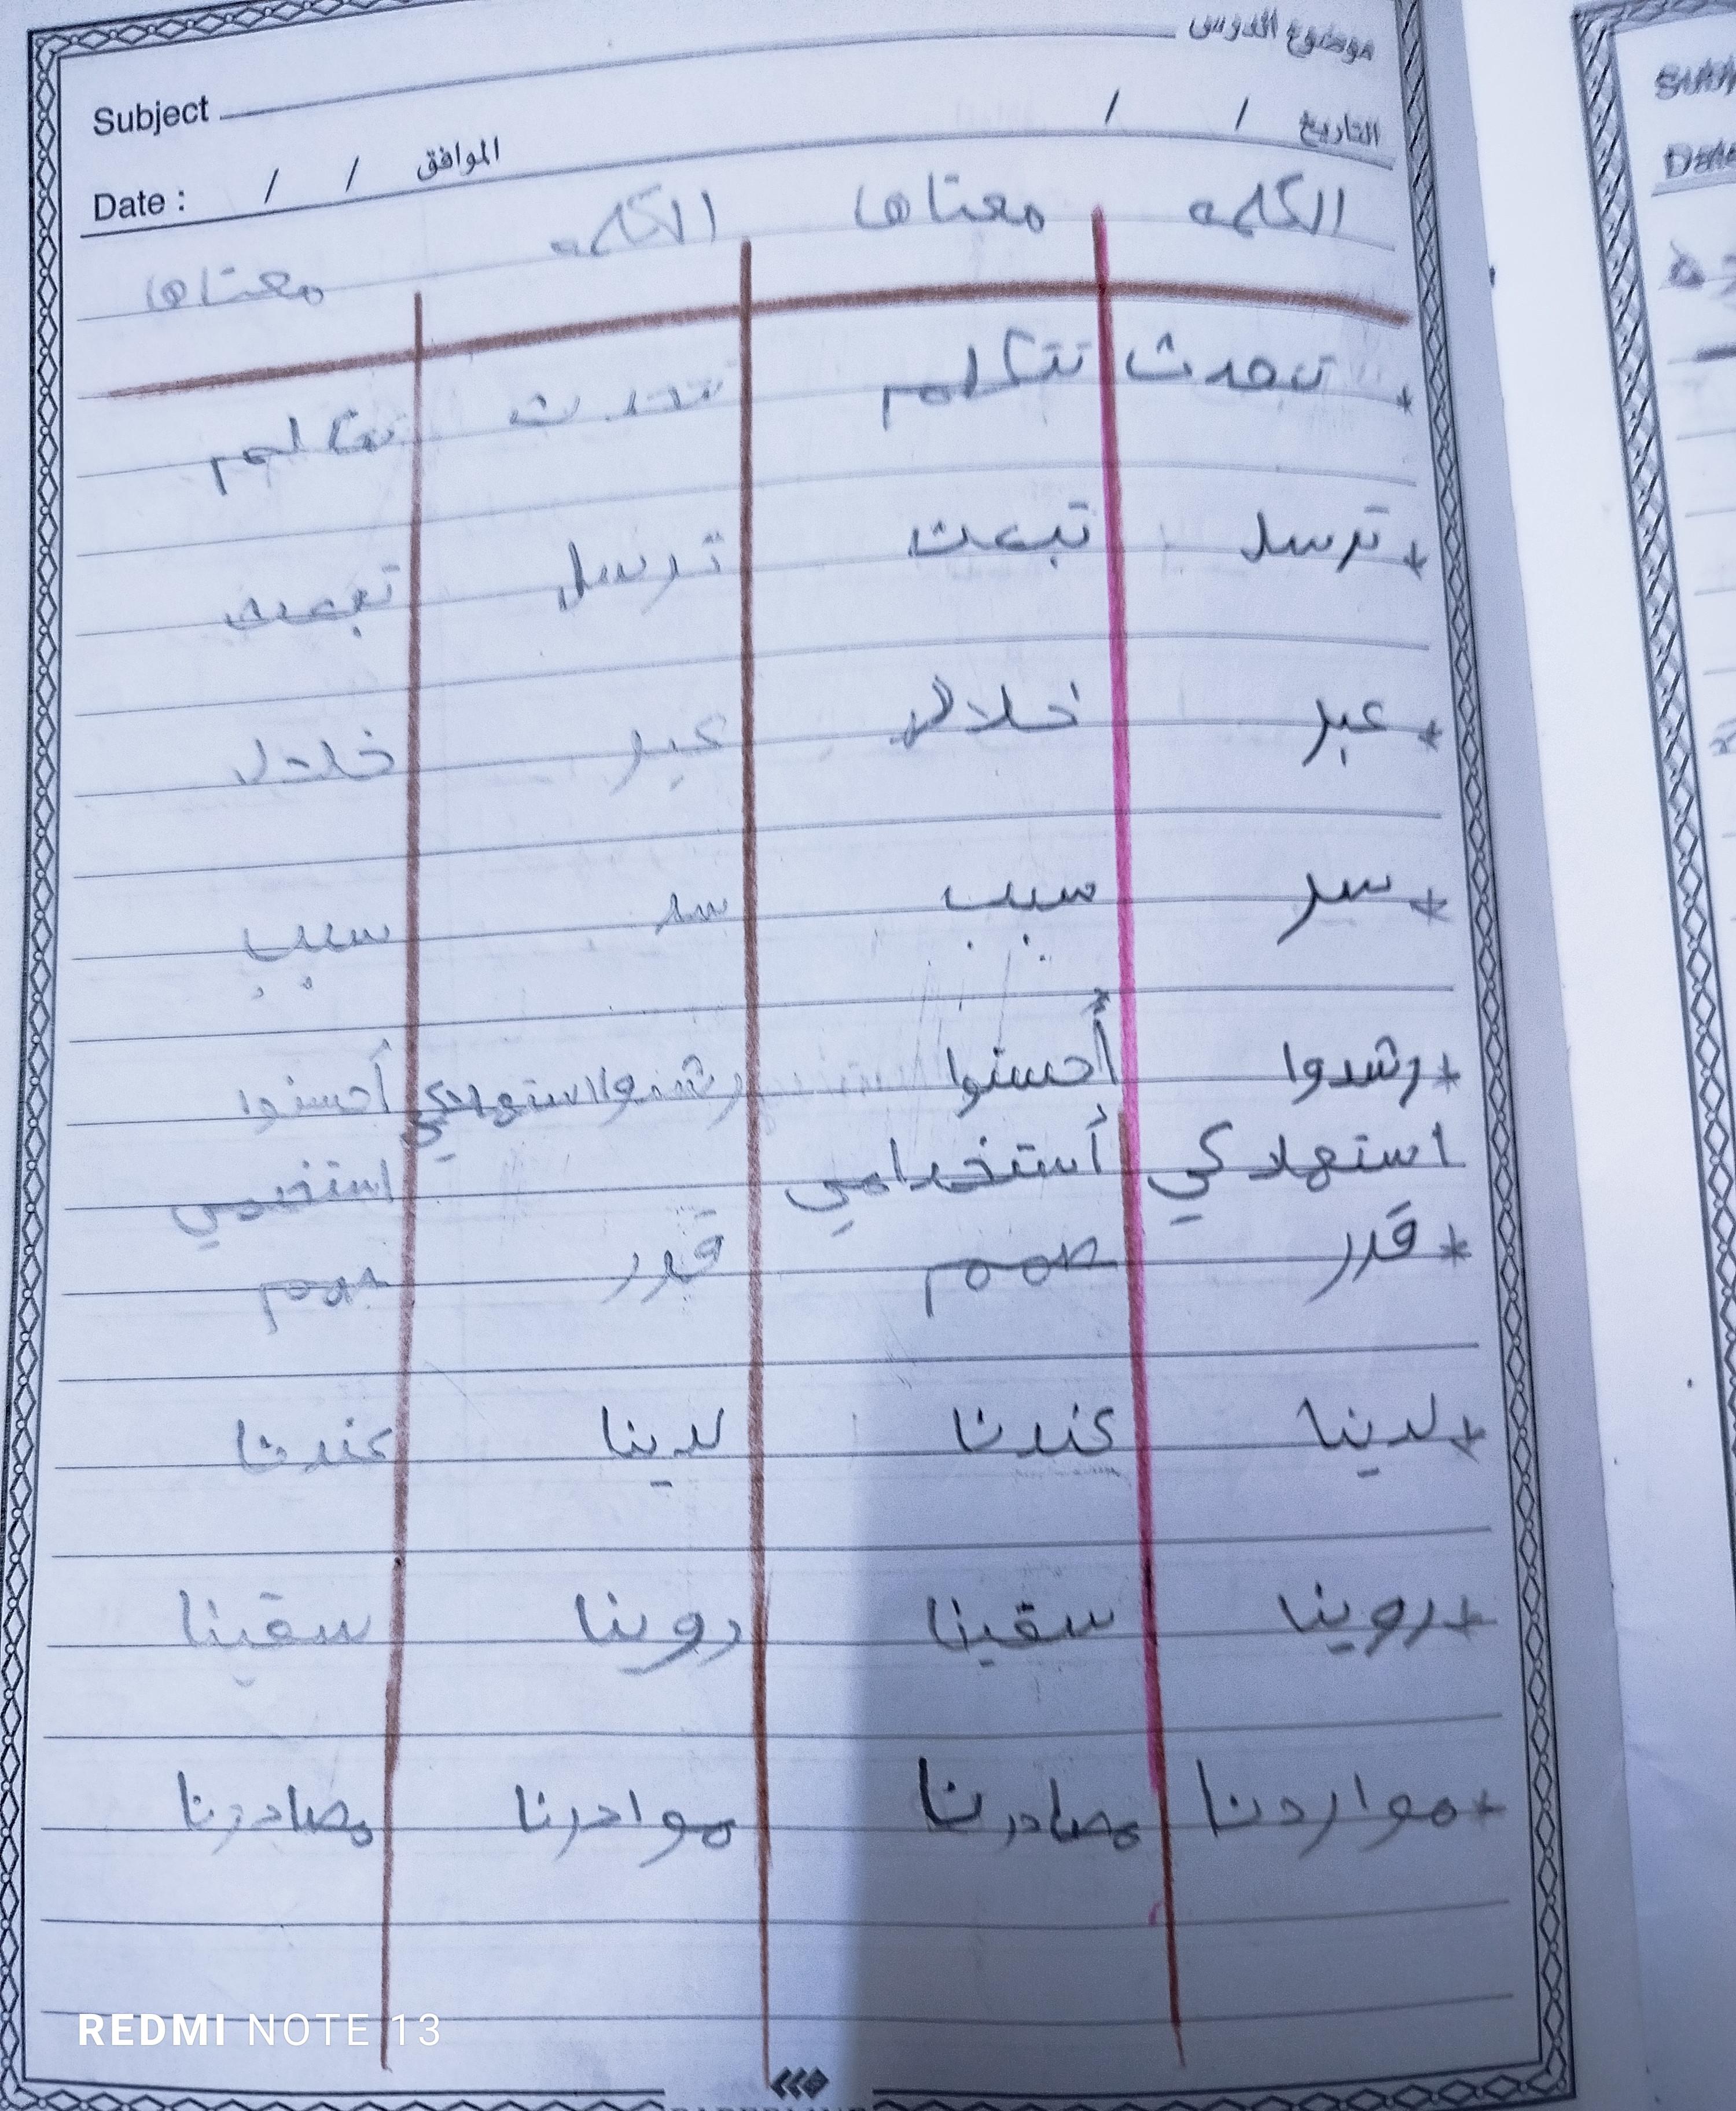 موضوع الدرس
Subject
التاريخ / /
Date : / / الموافق
الكلمه معناها الكلمه معناها
* تحدث تتكلم تحدث تتكلم
* ترسل تبعث ترسل تبعث
* عبر خلال عبر خلال
* سر سبب سر سبب
* رشدوا أحسنوا رشدوا استهلاكي أحسنوا
استهلاكي أستخدامي استخدامي
* قدر صمم قدر صمم
* لدينا عندنا لدينا عندنا
* روينا سقينا روينا سقينا
* مواردنا مصادرنا موادرنا مصادرنا
REDMI NOTE 13